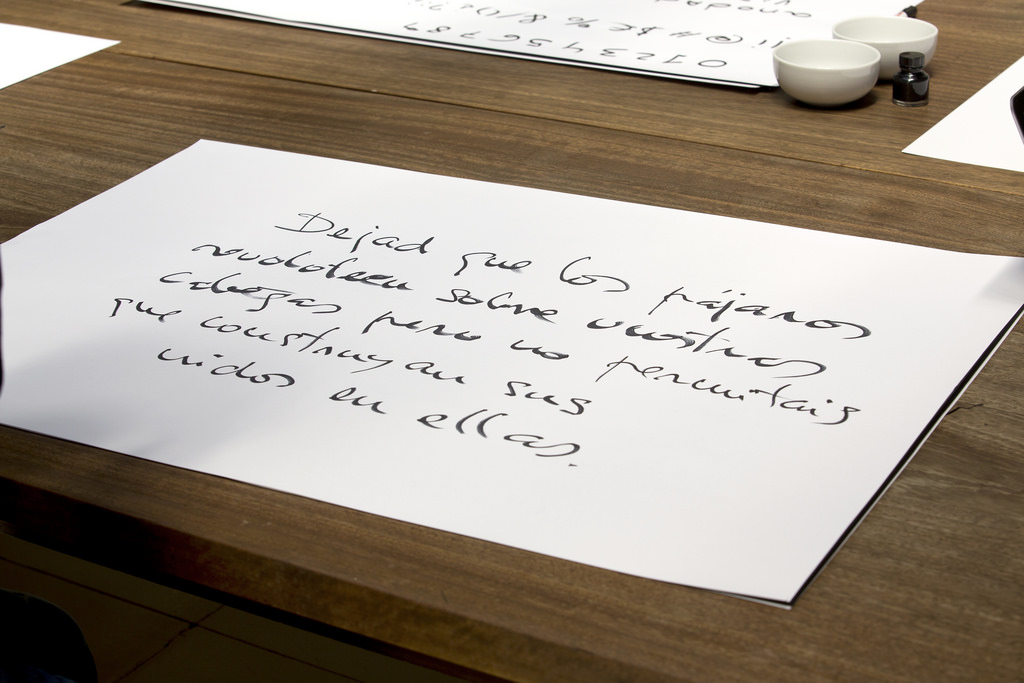 Dejad que los pájaros
revoloteen sobre vuestras
cabezas pero no permitais
que construyan sus
nidos en ellas.
0123456789
@#$€%&/()